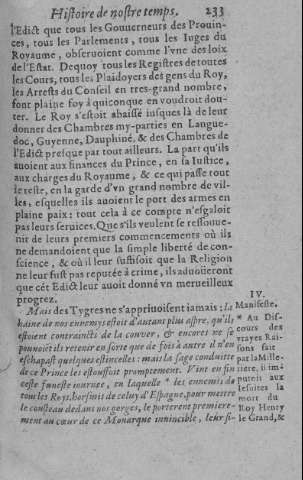 Histoire de nostre temps. 233
l'Edict que tous les Gouuerneurs des Prouin-
ces, tous les Parlements, tous les Iuges du
Royaume, obseruoient comme l'vne des loix
de l'Estat. Dequoy tous les Registres de toutes
les Cours, tous les Plaidoyers des gens du Roy,
les Arrests du Conseil en tres-grand nombre,
font plaine foy à quiconque en voudroit dou-
ter. Le Roy s'estoit abaissé iusques là de leur
donner des Chambres my-parties en Langue-
doc, Guyenne, Dauphiné, & des Chambres de
l'Edict presque par tout ailleurs. La part qu'ils
auoient aux finances du Prince, en sa Iustice,
aux charges du Royaume, & ce qui passe tout
le reste, en la garde d'vn grand nombre de vil-
les, esquelles ils auoient le port des armes en
plaine paix: tout cela à ce compte n'esgaloit
pas leurs seruices. Que s'ils veulent se ressouue-
nir de leurs premiers commencements où ils
ne demandoient que la simple liberté de con-
science, & où il leur suffisoit que la Religion
ne leur fust pas reputée à crime, ils aduoüeront
que cét Edict leur auoit donné vn merueilleux
progrez.
Mais des Tygres ne s'appriuoisent iamais: la
haine de nos ennemys estoit d'autant plus aspre, qu'ils
estoient contraincts de la couuer, & encores ne se
pouuoit-ils retenir en sorte que de fois à autre il n'en
eschapast quelques estincelles: mais la sage conduitte
de ce Prince les estouffoit promptement. Vint en fin
ceste funeste iournee, en laquelle * les ennemis de
tous les Roys, horsmis de celuy d'Espagne, pour mettre
le cousteau dedans nos gorges, le porterent premiere-
ment au cœur de ce Monarque inuincible, leur fi-
IV.
Manifeste.
* Au Dis-
cours des
vrayes Rai-
sons fait
par la Mille-
tiere, il im-
puteit aux
Iesuites la
mort du
Roy Henry
le Grand, &